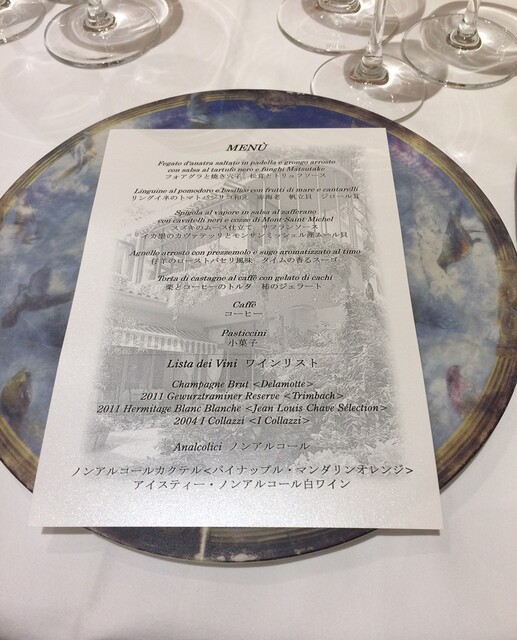 MENÙ
Fegato d'anatra saltato in padella e grongo arrosto
con salsa al tartufo nero e funghi Matsutake
フォアグラと焼き穴子 松茸とトリュフソース
Linguine al pomodoro e Basilico con frutti di mare e cantarelli
リングイネのトマトバジリコ和え 南海老 帆立貝 ジロール茸
Spigola al vapore in salsa al zafferano
con cavatelli neri e cozze di Mont-Saint Michel
スズキのムース仕立て サフランソース
イカ墨のカヴァテッリとモンサンミッシェル産ムール貝
Agnello arrosto con prezzemolo e sugo aromatizzato al timo
仔羊のローストパセリ風味 タイムの香るスーゴ
Torta di castagne al caffè con gelato di cachi
栗とコーヒーのトルタ 柿のジェラート
Caffè
コーヒー
Pasticcini
小菓子
Lista dei Vini ワインリスト
Champagne Brut <Delamotte>
2011 Gewurztraminer Reserve <Trimbach>
2011 Hermitage Blanc Blanche <Jean Louis Chave Sélection>
2004 I Collazzi <I Collazzi>
Analcolici ノンアルコール
ノンアルコールカクテル<パイナップル・マンダリンオレンジ>
アイスティー・ノンアルコール白ワイン